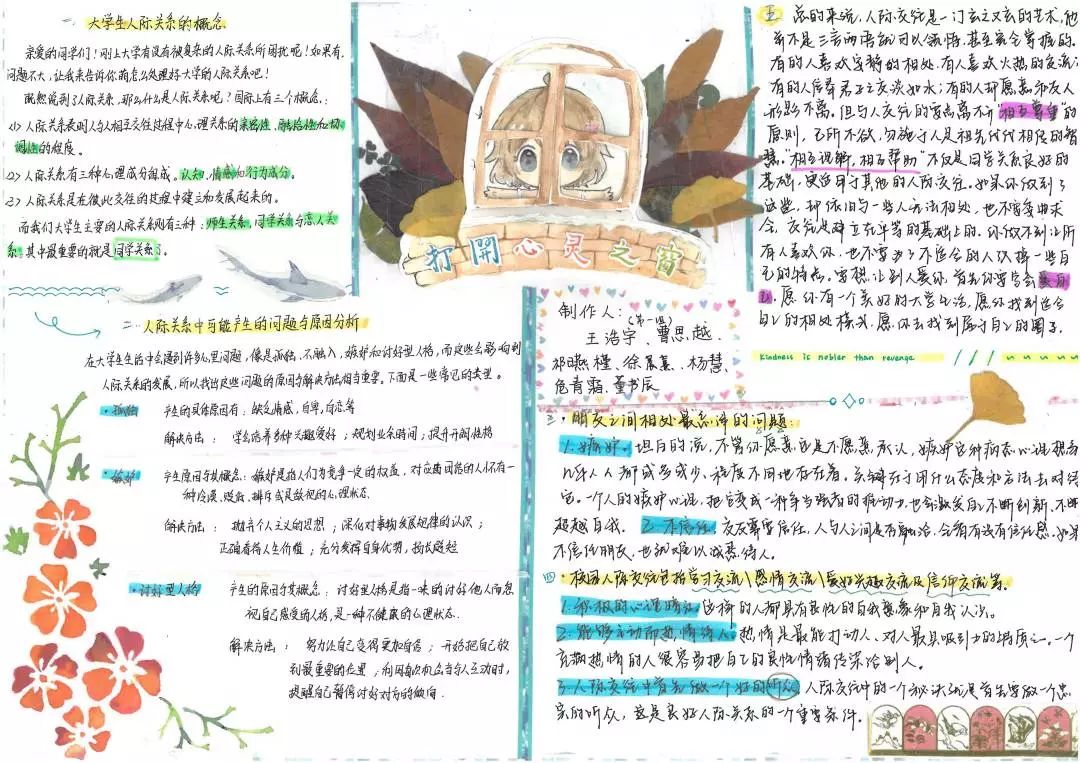 一、大学生人际关系的概念
亲爱的同学们！刚上大学有没有被复来的人际关系所困扰呢！如果有，
问题不大，让我来告诉你们怎么处理好大学的人际关系吧！
既然说到了人际关系，那么什么是人际关系呢？国际上有三个概念：
(1) 人际关系表明人与人相互交往过程中心理关系的亲密性、融洽性和协
调性的程度。
(2) 人际关系有三种心理成分组成。认知、情感和行为成分。
(3) 人际关系是在彼此交往的过程中建立和发展起来的。
而我们大学生主要的人际关系则有三种：师生关系，同学关系与恋人关
系，其中最重要的就是同学关系。
打開心灵之窗
二、人际关系中可能产生的问题与原因分析
在大学生生活中会遇到许多心里问题，像是孤独，不融入，嫉妒和讨好型人格，而这些会影响到
人际关系的发展，所以找出这些问题的原因与解决方法相当重要。下面是一些常见的类型。
·孤独 产生的具体原因有：缺乏情感，自卑，自恋等
解决方法：学会培养多种兴趣爱好；规划业余时间；提升开阔性格
·嫉妒 产生原因与其概念：嫉妒是指人们为竞争一定的权益，对应当团结的人怀有一
种冷漠、贬低、排斥或是敌视的心理状态.
解决方法：抛弃个人主义的思想；深化对事物发展规律的认识；
正确看待人生价值；充分发挥自身优势，扬长避短
·讨好型人格 产生的原因与其概念：讨好型人格是指一味的讨好他人而忽
视自己感受的人格，是一种不健康的心理状态.
解决方法：努力让自己变得更加自信；开始把自己放
到最重要的位置；利用每次机会当与人互动时，
提醒自己暂停讨好对方的倾向.
制作人：
(第一组)
王浩宇、曹思越、
祁曦槿、徐晨、杨慧、
危青霜、董书辰
三·朋友之间相处最忌讳的问题：
1.嫉妒。坦白的说，不管你愿意还是不愿意承认，嫉妒这种病态心理
几乎人人都或多或少，程度不同地存在着。关键在于用什么态度和方法去对待
它。一个人的嫉妒心说，把它变成一种争当强者的推动力，也会激发自己不断创新，不断
超越自我。 2.不信任。交友都要信任，人与人之间是有默契，会看有没有信任感。如果
不信任朋友，也就难以诚恳待人。
四·校园人际交往包括学习交流\感情交流\爱好兴趣交流及信仰交流等。
1.积极的心理暗示。这样的人都具有良性的自我意象和自我认识。
2.能够主动而热情待人。热情是最能打动人、对人最具吸引力的特质之一。一个
充满热情的人很容易把自己的良性情绪传染给别人。
3.人际交往中首先做一个好的听众。人际交往中的一个秘诀就是首先要做一个忠
实的听众，这是良好人际关系的一个重要条件。
五 总的来说，人际交往是一门玄之又玄的艺术，他
并不是三言两语就可以领悟，甚至完全掌握的。
有的人喜欢安静的相处，有人喜欢火热的交流；
有的人信奉君子之交淡如水；有的人却愿意和友人
形影不离。但与人交往的要点离不开"相互尊重"的
原则，己所不欲，勿施于人是祖先代代相传的智
慧。"相互理解，相互帮助"不仅是同学关系良好的
基础，更适用于其他的人际交往。如果你做到了
这些，却依旧与一些人无法相处，也不需要曲求
全，友谊是建立在平等的基础上的。你做不到让所
有人喜欢你，也不需为了不适合的人抹掉一些自
己的特点。要想让别人爱你，首先你要学会爱自
己。愿你有一个美好的大学生活，愿你找到适合
自己的相处模式，愿你去找到属于自己的圈子。
Kindness is nobler than revenge